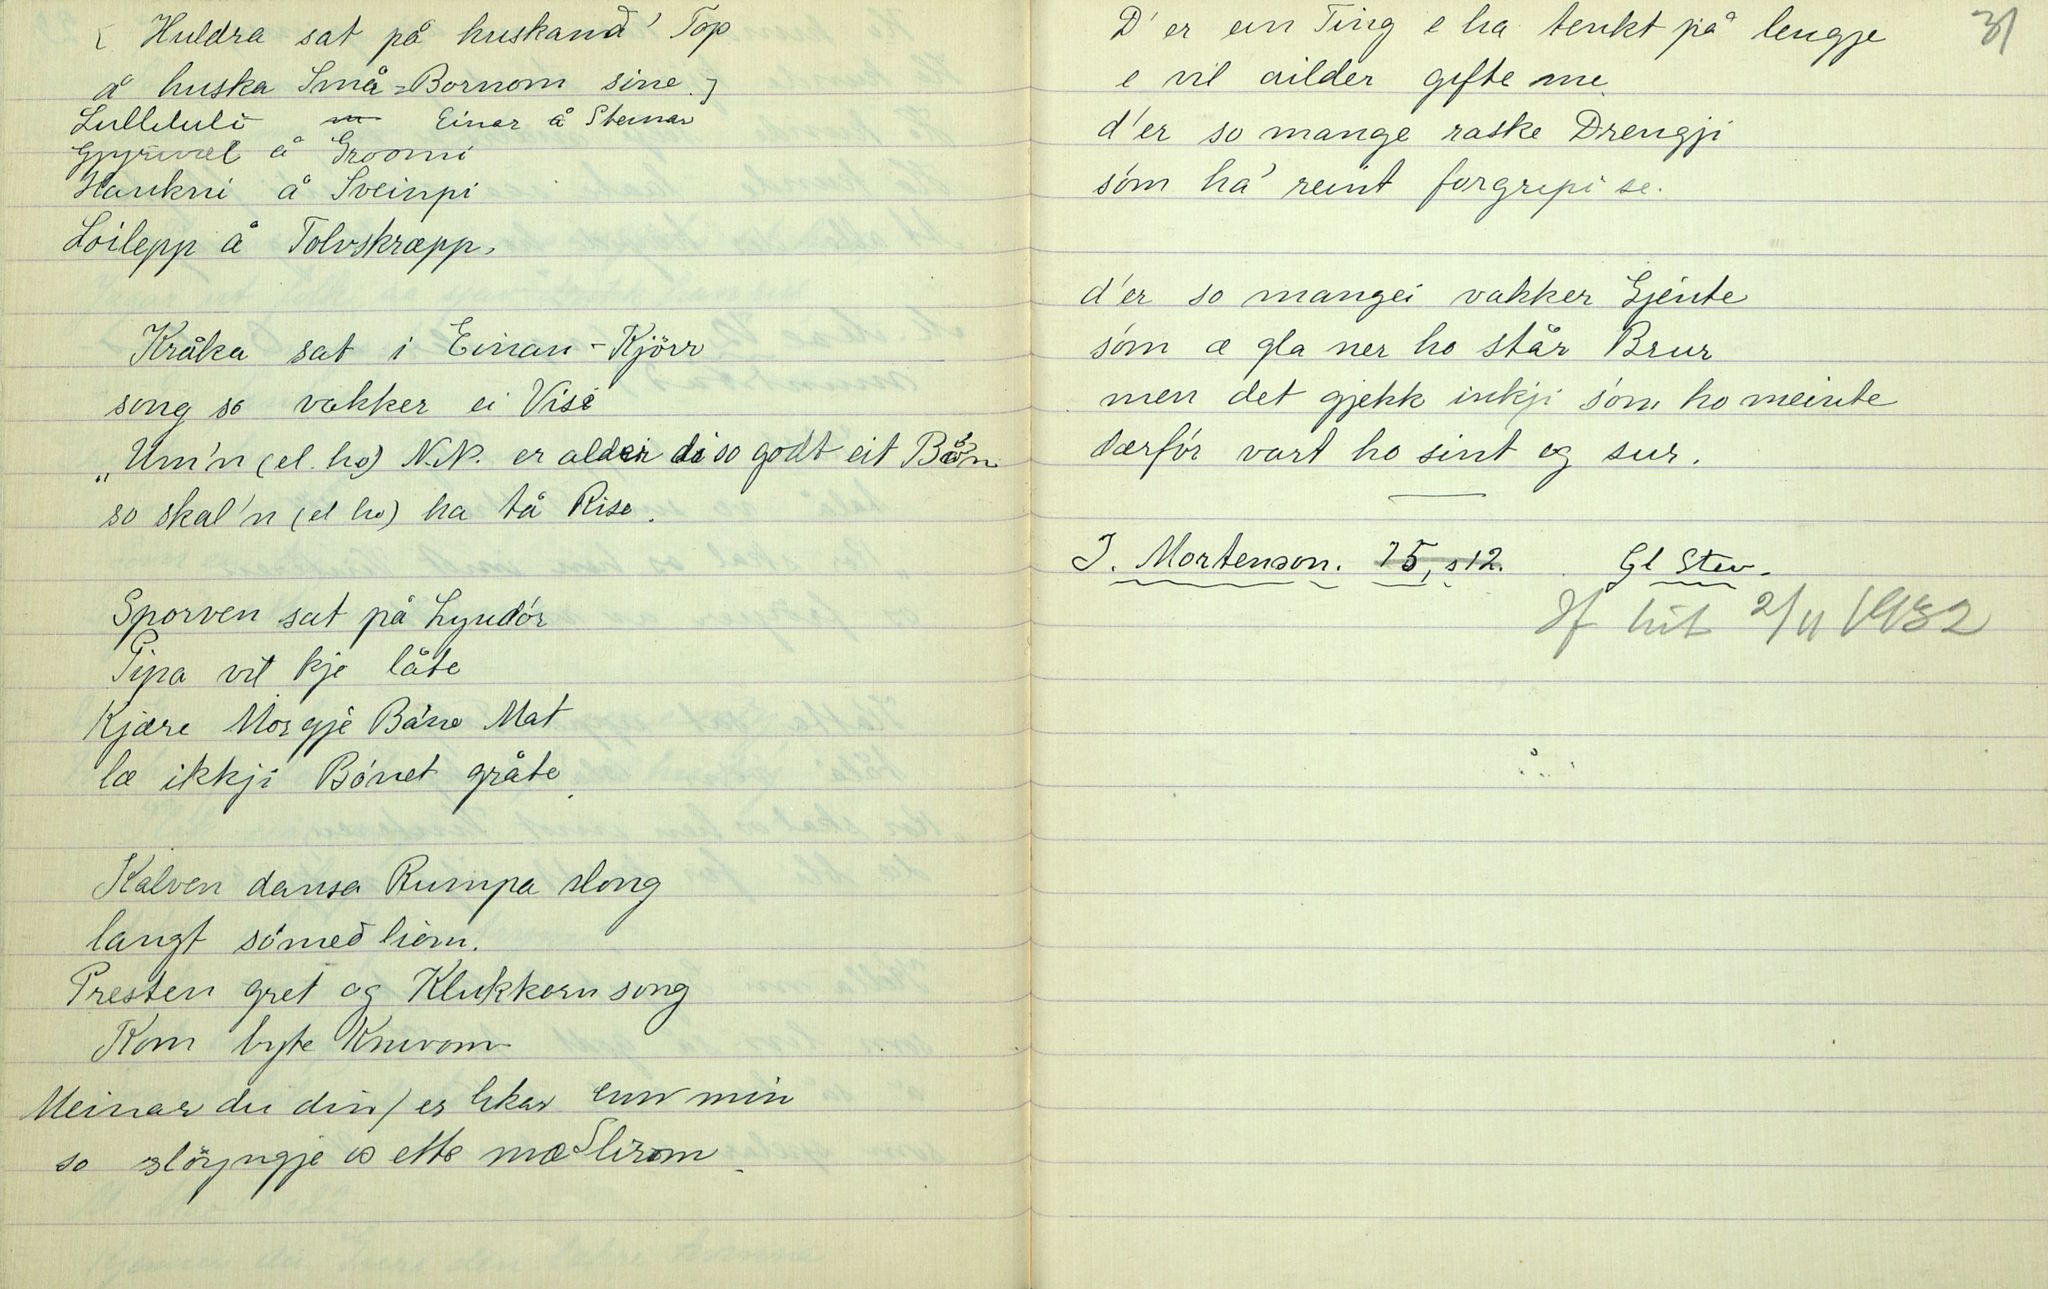 [ Huldra sat på huskand' Top
å huska Små-Bornom sine.]
Lulleluli Einar å Steinar
Gjyrivæl å Groomi
Haukni å Sveinpi
Loilepp å Tolvskræpp.
Kråka sat i Einan-Kjörr
song so vakker ei Vise
"Um'n (el. ho) N.N. er alder di so godt eit Bån
so skal'n (el ho) ha tå Rise.
Sporven sat på Lyndór
Pipa vil kje låte
Kjære Mor gje Báne Mat
læ ikkji Bónet gråte.
Kalven dansa Rumpa slong
langt sómeð liom.
Presten gret og Klukkern song
Kom byte Knivom
Meinar du din er likar enn min
so slöyngje os ette mæ Slirom.
31
D'er ein Ting e ha tenkt på lengje
e vil ailder gifte me.
d'er so mange raske Drengji
sóm ha' reint forgripi se.
d'er so mangei vakker Gjente
sóm æ gla ner ho står Brur
men det gjekk inkji sóm ho meinte
dærfór vart ho sint og sur.
J. Mortenson. 75, s 12. Gl Stev.
Af hit 2/11 1932